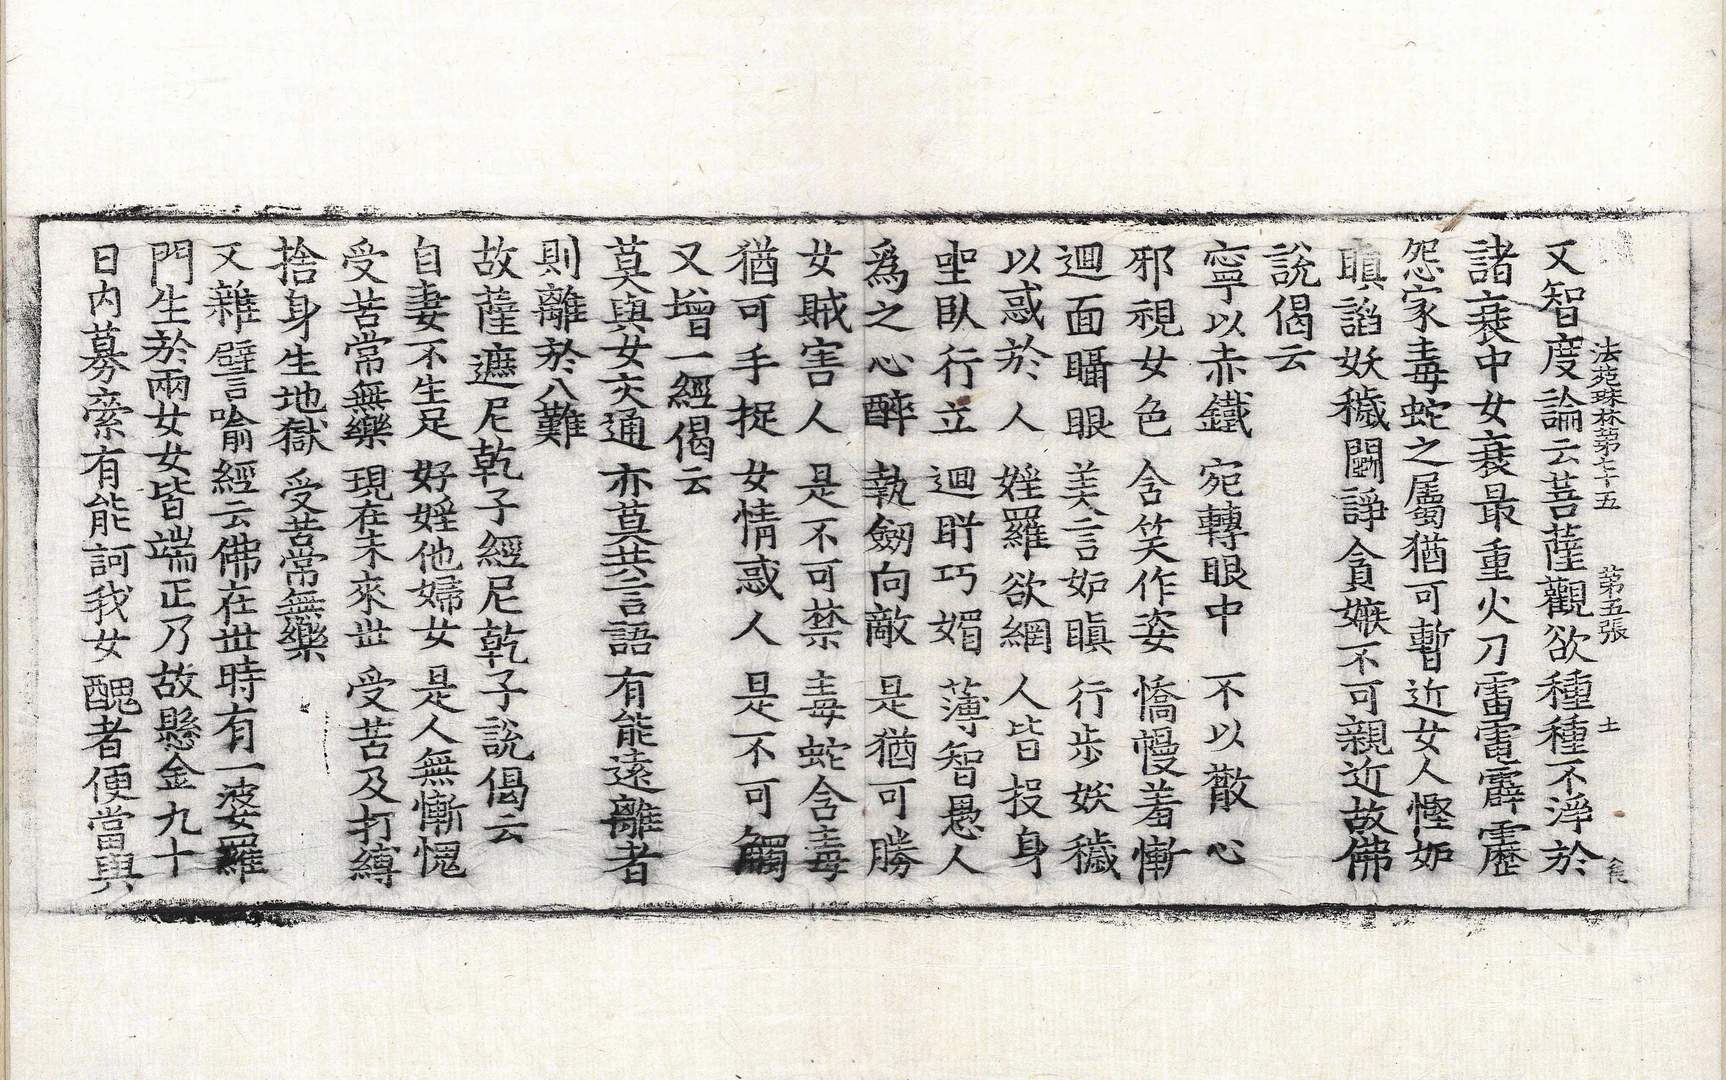 法苑珠林第七十五 第五張 土
又智度論云菩薩觀欲種種不淨於
諸衰中女衰最重火刀雷電霹靂
怨家毒蛇之屬猶可暫近女人慳妬
瞋諂妖穢鬪諍貪嫉不可親近故佛
說偈云
寧以赤鐵 宛轉眼中 不以散心
邪視女色 含笑作姿 憍慢羞慚
迴面聶眼 美言妬瞋 行步妖穢
以惑於人 婬羅欲網 人皆投身
坐臥行立 迴眄巧媚 薄智愚人
爲之心醉 執劒向敵 是猶可勝
女賊害人 是不可禁 毒蛇含毒
猶可手捉 女情惑人 是不可觸
又增一經偈云
莫與女交通 亦莫共言語 有能遠離者
則離於八難
故薩遮尼乾子經尼乾子說偈云
自妻不生足 好婬他婦女 是人無慚愧
受苦常無樂 現在未來世 受苦及打縛
捨身生地獄 受苦常無樂
又雜譬喻經云佛在世時有一婆羅
門生於兩女女皆端正乃故懸金九十
日內募索有能訶我女醜者便當與